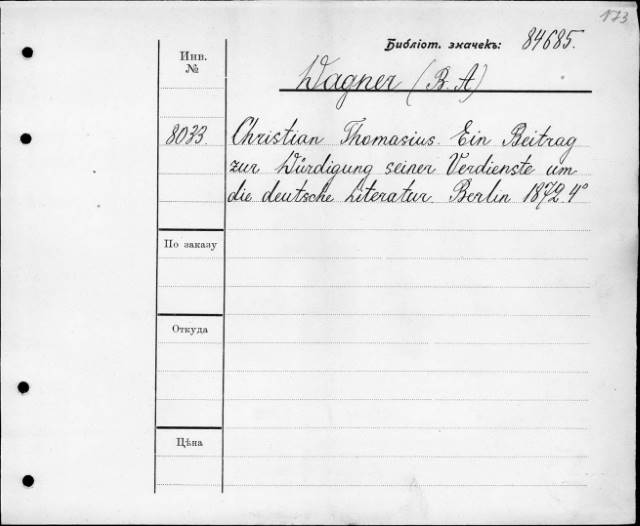 173
Библіот. значекъ: 84685.
Инв. №
Wagner (B. A)
8033. Christian Thomasius. Ein Beitrag
zur Würdigung seiner Verdienste um
die deutsche Literatur. Berlin 1872. 4°
По заказу
Откуда
Цѣна